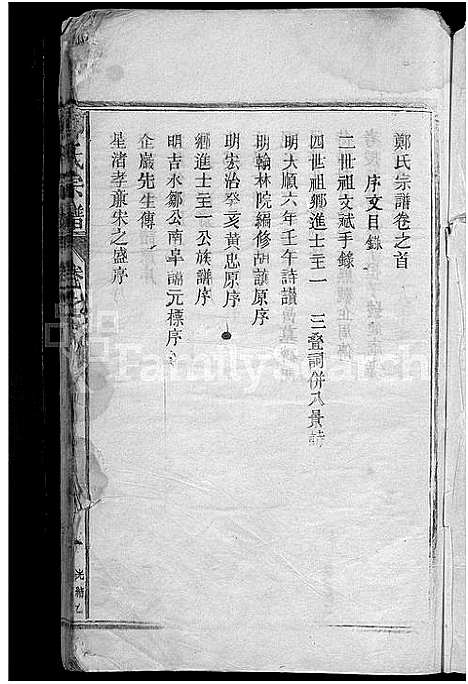 鄭氏宗譜卷之首
序文目錄
二世祖文斌手錄
四世祖鄉進士至一 三叠詞併八景詩
明大順六年壬午詩讃
明翰林院編修胡 原序
明宏治癸亥黃忠原序
鄉進士至一公族譜序
明吉水鄒公南臯諱元標序
企嚴先生傳
星渚孝廉宋之盛序
氏宗譜
卷
光緒乙
FamilySearch